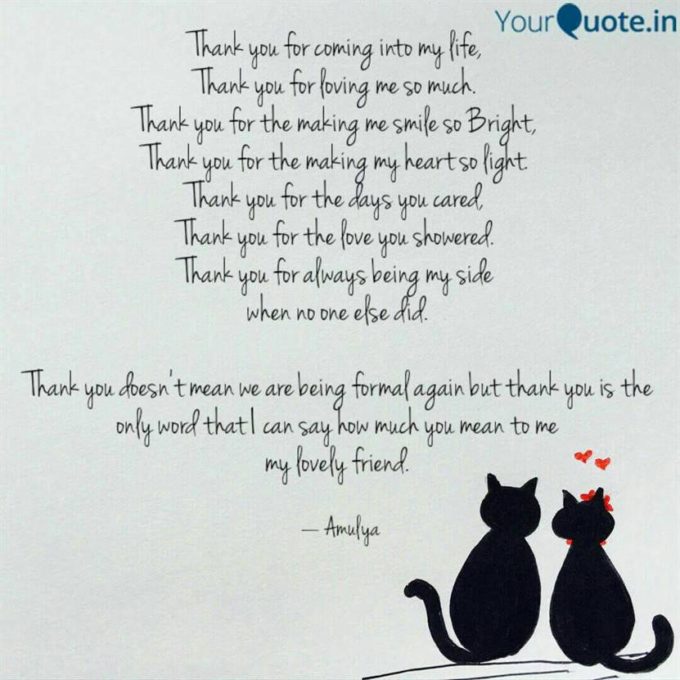 YourQuote.in
Thank you for coming into my life,
Thank you for loving me so much.
Thank you for the making me smile so Bright,
Thank you for the making my heart so light.
Thank you for the days you cared,
Thank you for the love you showered.
Thank you for always being my side
when no one else did.
Thank you doesn't mean we are being formal again but thank you is the
only word that I can say how much you mean to me
my lovely friend.
— Amulya